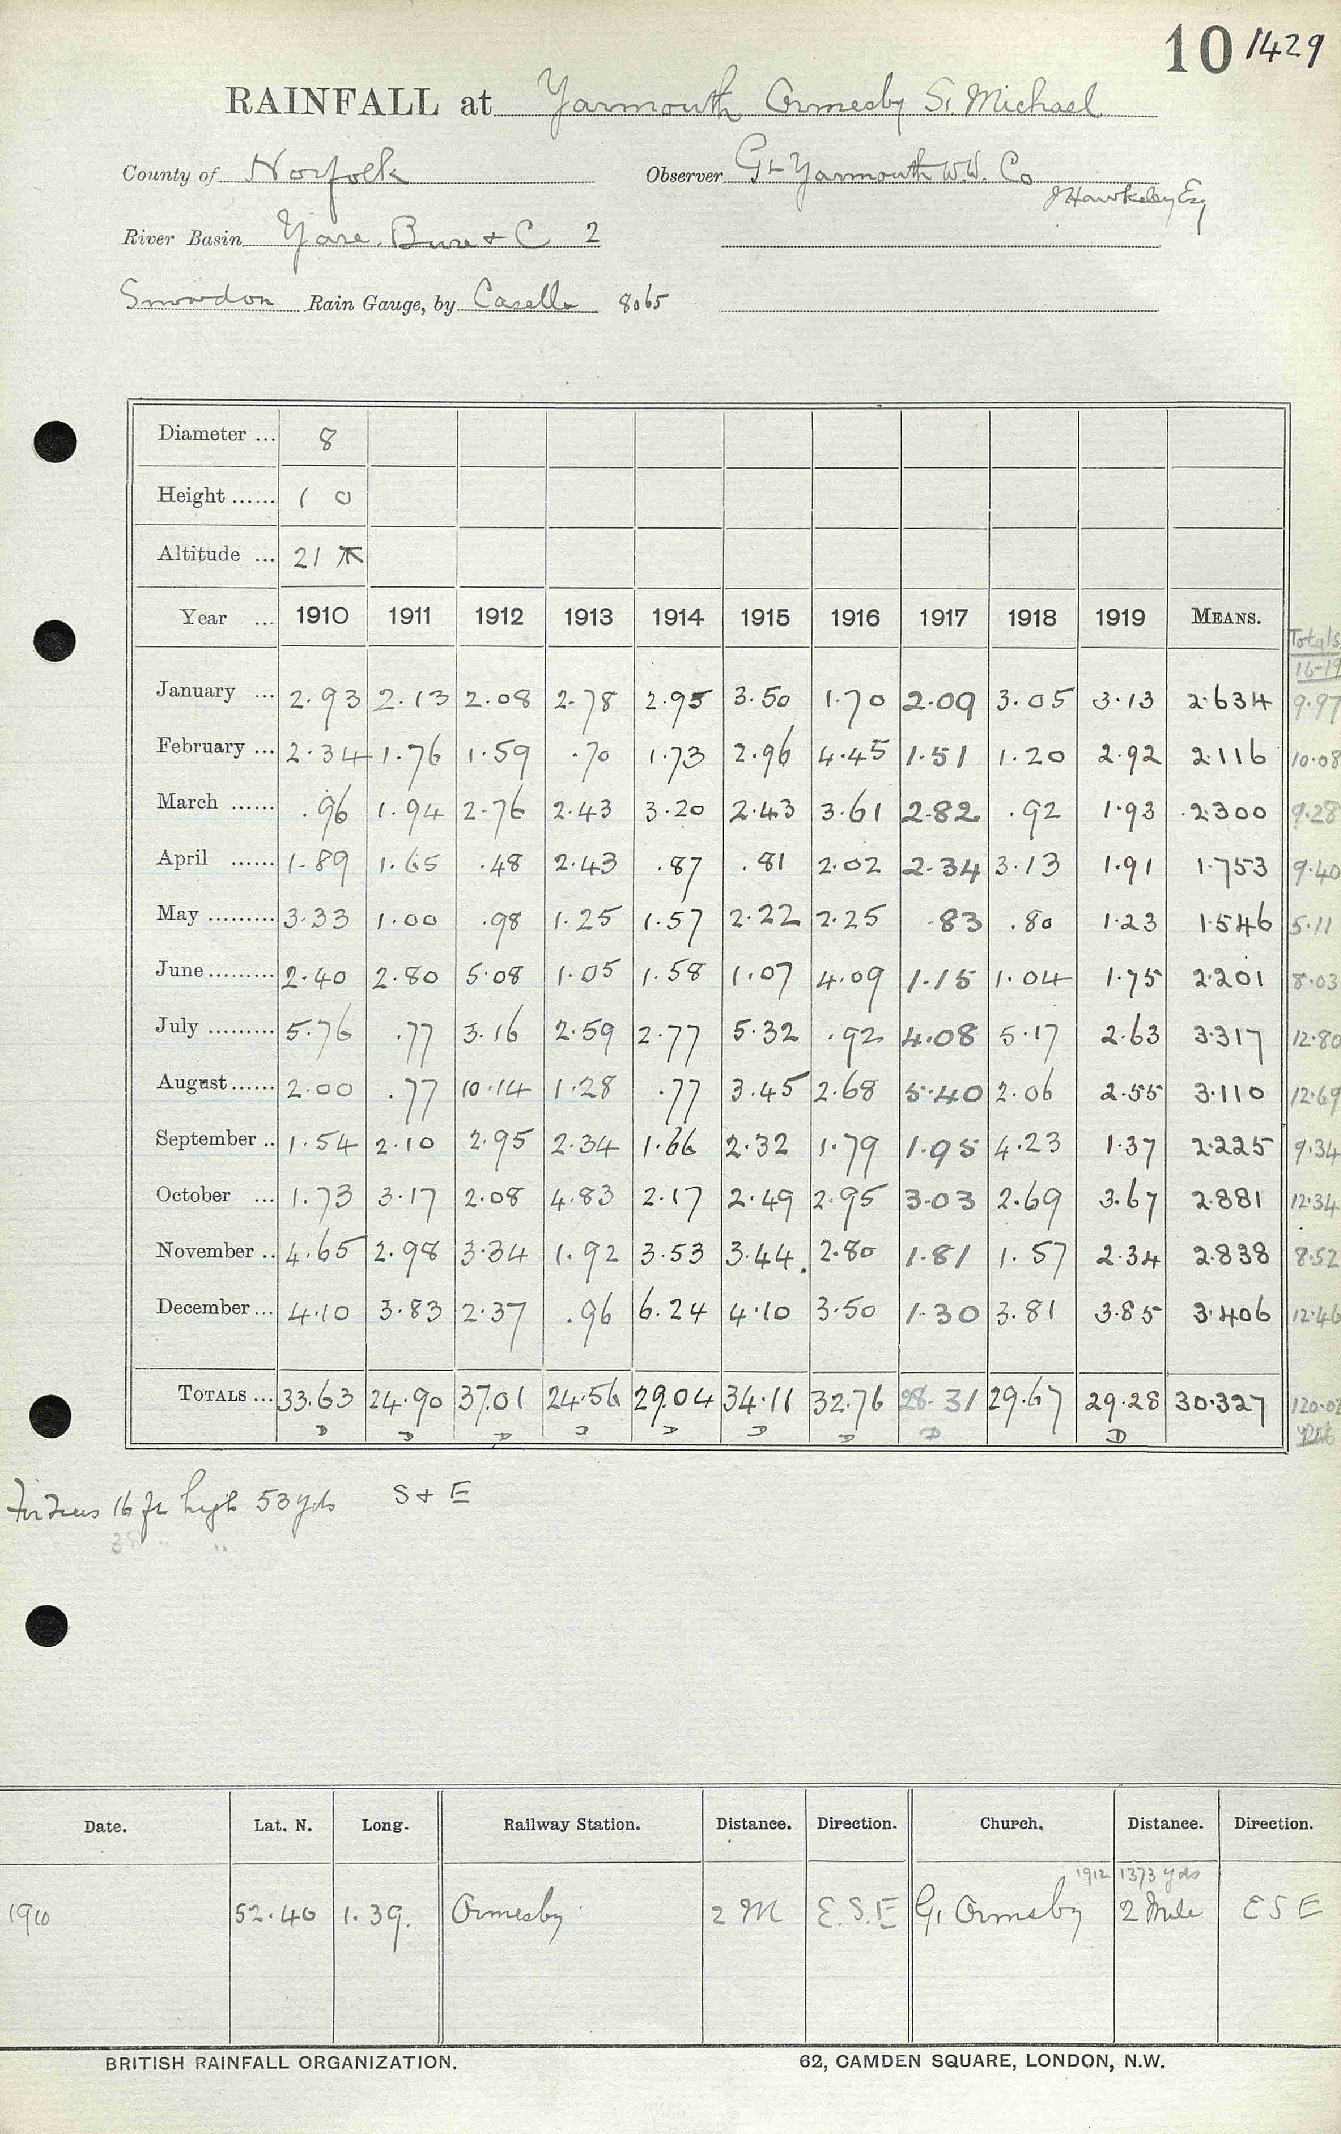 10 1429
RAINFALL at Yarmouth Ormesby St Michael
County of Norfolk Observer Gt Yarmouth W.W. Co
J Hawksley Esq
River Basin Yare, Bure & C 2
Snowdon Rain Gauge, by Casella 8065
Diameter ... 8
Height ...... 1 0
Altitude ... 21
Year ... 1910 1911 1912 1913 1914 1915 1916 1917 1918 1919 MEANS. Totals 16-19
January ... 2.93 2.13 2.08 2.78 2.95 3.50 1.70 2.09 3.05 3.13 2.634 9.97
February ... 2.34 1.76 1.59 .70 1.73 2.96 4.45 1.51 1.20 2.92 2.116 10.08
March ...... .96 1.94 2.76 2.43 3.20 2.43 3.61 2.82 .92 1.93 2.300 9.28
April ...... 1.89 1.65 .48 2.43 .87 .81 2.02 2.34 3.13 1.91 1.753 9.40
May ......... 3.33 1.00 .98 1.25 1.57 2.22 2.25 .83 .80 1.23 1.546 5.11
June ......... 2.40 2.80 5.08 1.05 1.58 1.07 4.09 1.15 1.04 1.75 2.201 8.03
July ......... 5.76 .77 3.16 2.59 2.77 5.32 .92 4.08 5.17 2.63 3.317 12.80
August ...... 2.00 .77 10.14 1.28 .77 3.45 2.68 5.40 2.06 2.55 3.110 12.69
September .. 1.54 2.10 2.95 2.34 1.66 2.32 1.79 1.95 4.23 1.37 2.225 9.34
October ... 1.73 3.17 2.08 4.83 2.17 2.49 2.95 3.03 2.69 3.67 2.881 12.34
November .. 4.65 2.98 3.34 1.92 3.53 3.44 2.80 1.81 1.57 2.34 2.838 8.52
December ... 4.10 3.83 2.37 .96 6.24 4.10 3.50 1.30 3.81 3.85 3.406 12.46
TOTALS ... 33.63 24.90 37.01 24.56 29.04 34.11 32.76 28.31 29.67 29.28 30.327 120.02
D D D D D D D D D
Fir Trees 16 ft high 53 yds S & E
38 " "
Date. Lat. N. Long. Railway Station. Distance. Direction. Church. Distance. Direction.
1912 1373 yds
1910 52.40 1.39. Ormesby 2 M E.S.E Gt Ormsby 2 Mile ESE
BRITISH RAINFALL ORGANIZATION. 62, CAMDEN SQUARE, LONDON, N.W.